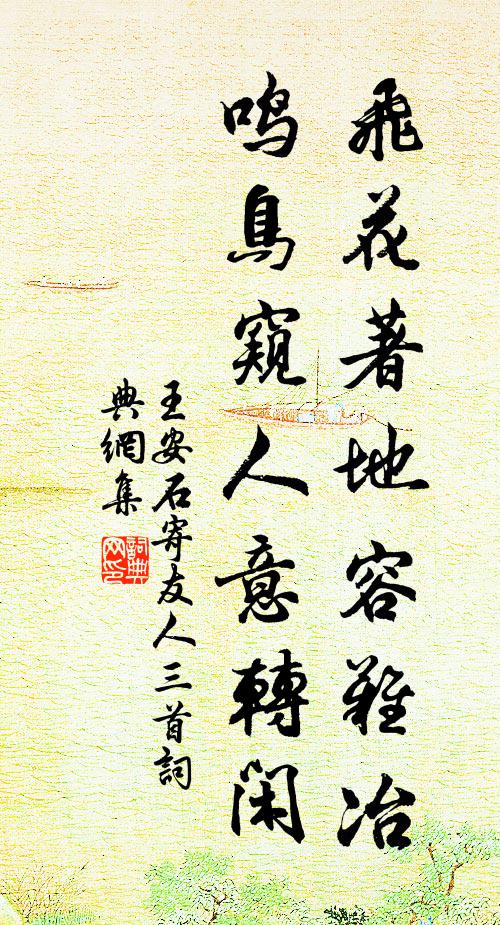 飛花著地容難冶
鳴鳥窺人意轉閑
王安石寄友人三首詞
典網集
詞典網印